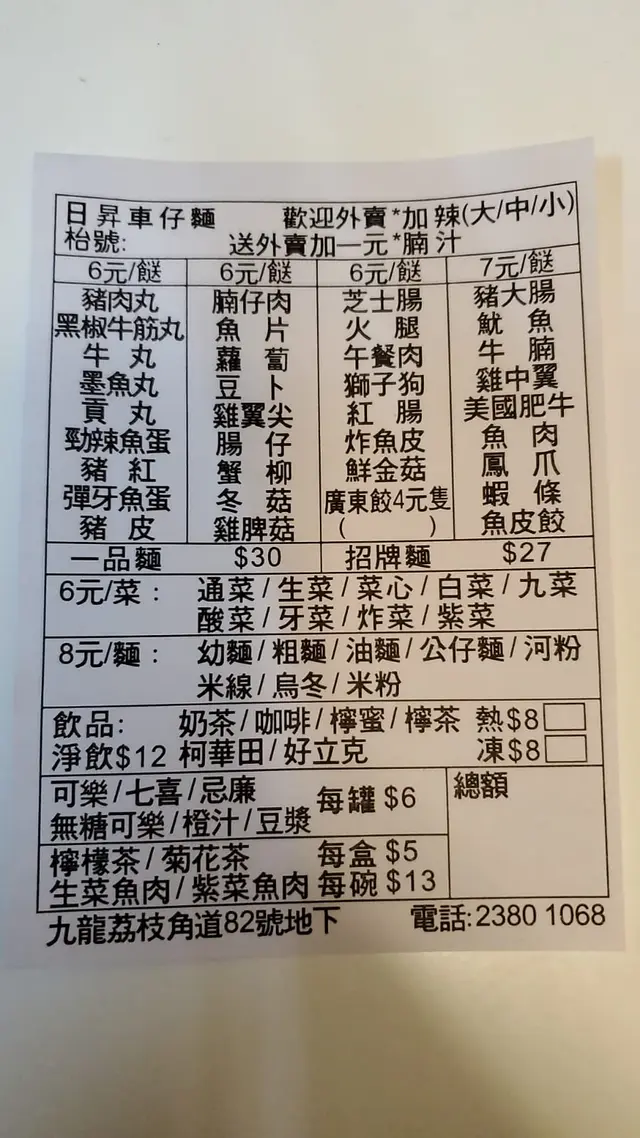 日昇車仔麵 歡迎外賣*加辣(大/中/小)
枱號: 送外賣加一元*腩汁
6元/餸 6元/餸 6元/餸 7元/餸
豬肉丸 腩仔肉 芝士腸 豬大腸
黑椒牛筋丸 魚片 火腿 魷魚
牛丸 蘿蔔 午餐肉 牛腩
墨魚丸 豆卜 獅子狗 雞中翼
貢丸 雞翼尖 紅腸 美國肥牛
勁辣魚蛋 腸仔 炸魚皮 魚肉
豬紅 蟹柳 鮮金菇 鳳爪
彈牙魚蛋 冬菇 廣東餃4元隻 蝦條
豬皮 雞脾菇 ( ) 魚皮餃
一品麵 $30 招牌麵 $27
6元/菜: 通菜/生菜/菜心/白菜/九菜
酸菜/牙菜/炸菜/紫菜
8元/麵: 幼麵/粗麵/油麵/公仔麵/河粉
米線/烏冬/米粉
飲品: 奶茶/咖啡/檸蜜/檸茶 熱$8
淨飲$12 柯華田/好立克 凍$8
可樂/七喜/忌廉 每罐 $6 總額
無糖可樂/橙汁/豆漿
檸檬茶/菊花茶 每盒 $5
生菜魚肉/紫菜魚肉 每碗 $13
九龍荔枝角道82號地下 電話:2380 1068